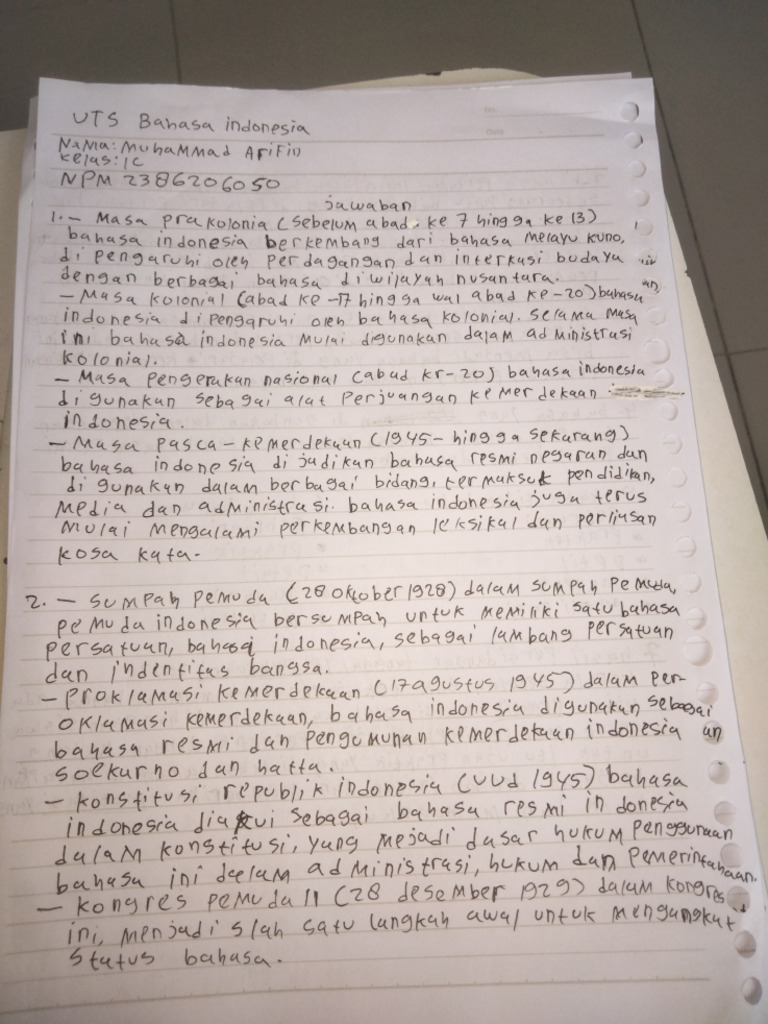 UTS Bahasa indonesia
NAMA: MUHAMMAD ARIFIN
Kelas: 1C
NPM 2386206050
jawaban
1. - Masa prakolonia (sebelum abad ke 7 hingga ke 13)
bahasa indonesia berkembang dari bahasa melayu kuno,
di pengaruhi oleh perdagangan dan interkusi budaya
dengan berbagai bahasa diwilayah nusantara.
- Masa kolonial (abad ke-17 hingga wal abad ke-20) bahasa
indonesia di pengaruhi oleh bahasa kolonial. selama masa
ini bahasa indonesia mulai digunakan dalam administrasi
kolonial.
- Masa pengerakan nasional (abad kr-20) bahasa indonesia
digunakan sebagai alat perjuangan kemerdekaan
indonesia.
- Masa pasca-kemerdekaan (1945-hingga sekarang)
bahasa indonesia di jadikan bahasa resmi negaran dan
di gunakan dalam berbagai bidang, termaksuk pendidikan,
media dan administrasi. bahasa indonesia juga terus
mulai mengalami perkembangan leksikal dan perluasan
kosa kata.
2. - sumpah pemuda (28 oktober 1928) dalam sumpah pemuda,
pemuda indonesia bersumpah untuk memiliki satu bahasa
persatuan, bahasa indonesia, sebagai lambang persatuan
dan indentitas bangsa.
- proklamasi kemerdekaan (17 agustus 1945) dalam per-
oklamasi kemerdekaan, bahasa indonesia digunakan sebagai
bahasa resmi dan pengumunan kemerdekaan indonesia
soekarno dan hatta.
- konstitusi republik indonesia (uud 1945) bahasa
indonesia diakui sebagai bahasa resmi indonesia
dalam konstitusi, yang mejadi dasar hukum penggunaan
bahasa ini dalam administrasi, hukum dan pemerintahaan.
- kongres pemuda II (28 desember 1929) dalam kongres
ini, menjadi slah satu langkah awal untuk mengangkat
status bahasa.